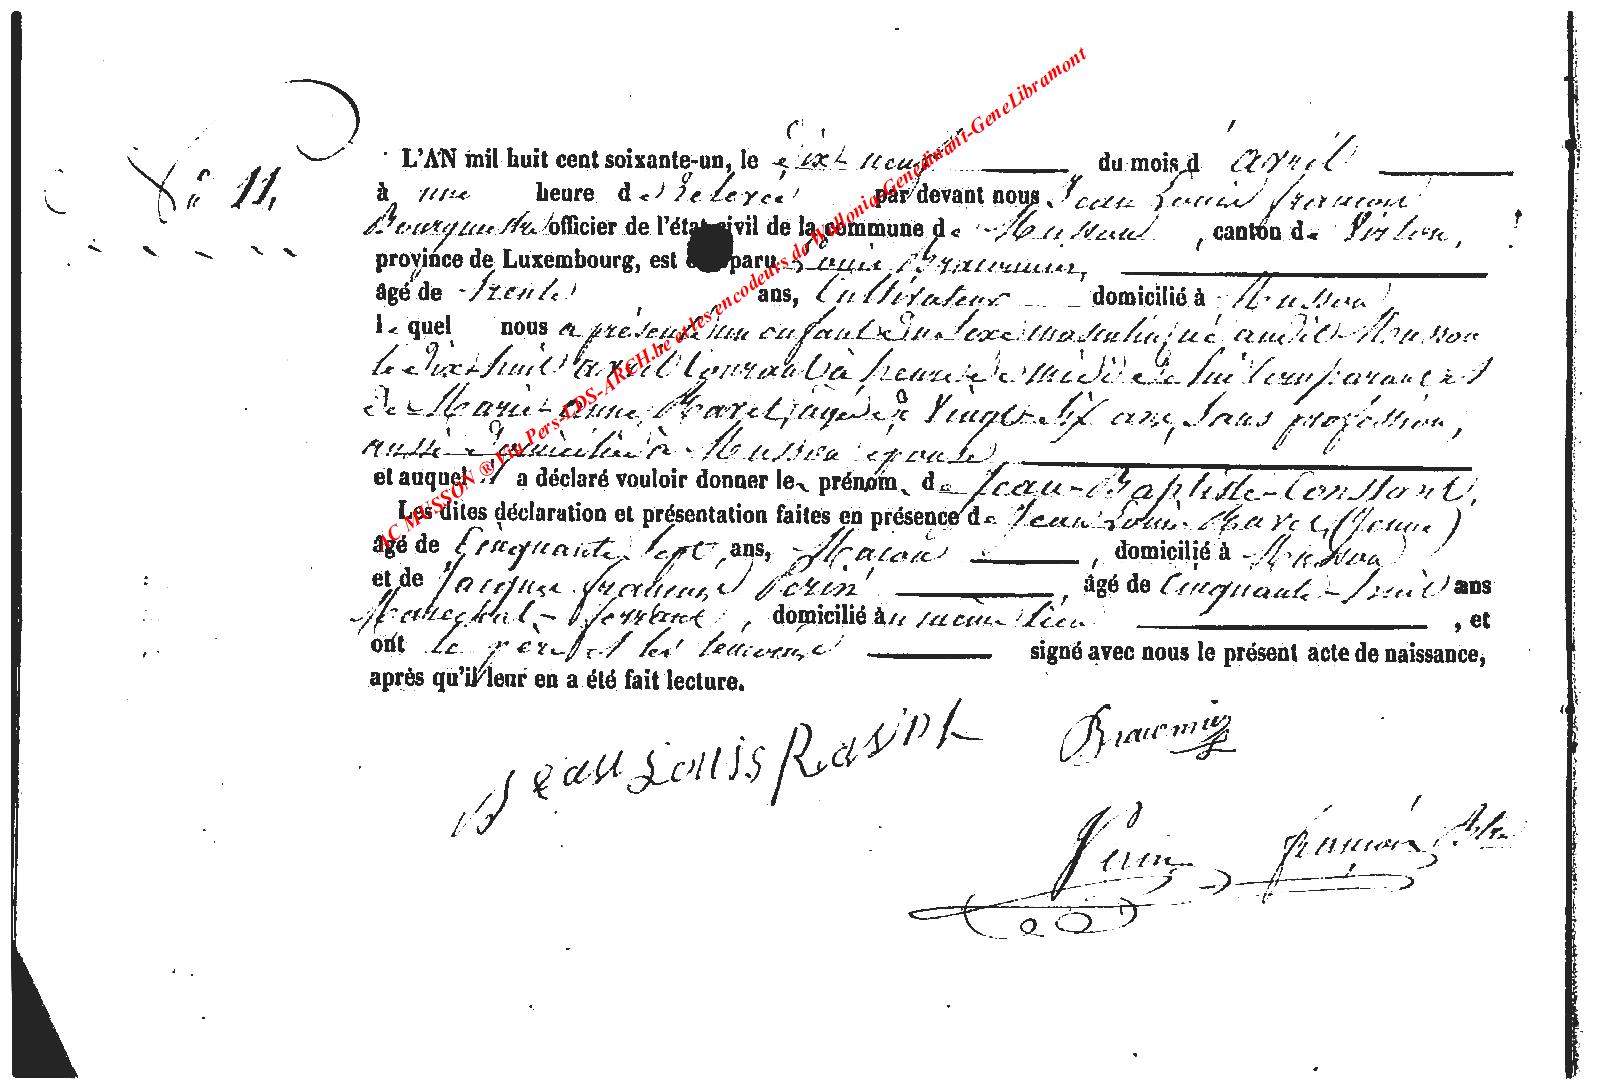 N° 11.
L'AN mil huit cent soixante-un, le dix neuf du mois d'avril
à une heure de relevée par devant nous Jean Louis François
Bourgmestre officier de l'état civil de la commune de Musson, canton de Virton,
province de Luxembourg, est comparu Louis
âgé de trente ans, Cultivateur domicilié à Musson
lequel nous a présenté un enfant du sexe masculin, né audit Musson
le dix huit avril courant à heure de midi de lui Comparant et
de Marie-Anne agée de Vingt six ans, sans profession,
aussi domiciliée à Musson épouse
et auquel il a déclaré vouloir donner les prénoms de Jean-Baptiste-Constant.
Les dites déclaration et présentation faites en présence de Jean Louis (Jeune)
âgé de Cinquante sept ans, Maçon, domicilié à Musson
et de Jacques François Perin, âgé de Cinquante-huit ans
Maréchal-ferrant, domicilié au même lieu, et
ont le père et les témoins signé avec nous le présent acte de naissance,
après qu'il leur en a été fait lecture.
Jean Louis
Perin François
AC MUSSON ® Via Pers-LDS-ARCH.be et les encodeurs de Wallonia-Genedinant-GeneLibramont